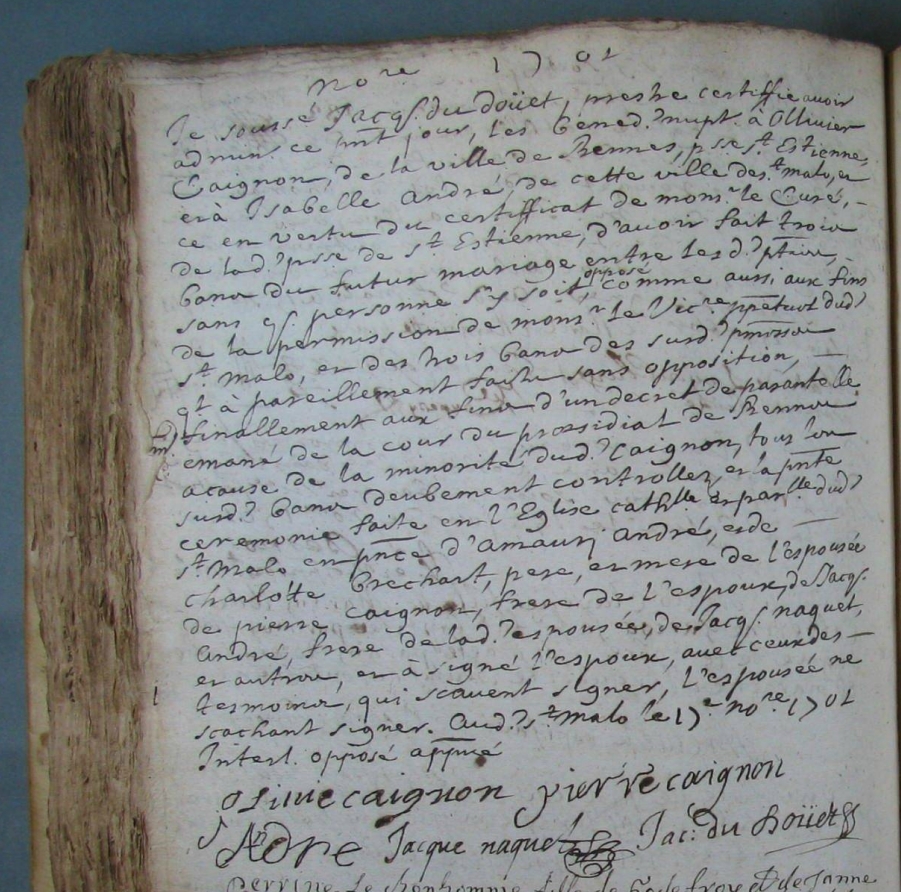 Nore 1701
Je soussé Jacqs. du doüet, prestre certiffie avoir
admin. ce jour, les bened. nupt. à Ollivier
Caignon, de la ville de Rennes, psse st. Estienne,
et à Isabelle André, de cette ville de st. malo, et
ce en vertu du certifficat de monsr. le Curé, –
de lad. psse de st. Estienne, d'avoir fait trois
bans du futur mariage entre lesd. parties, –
sans qs personne s'y soit, opposé comme aussi aux fins
de la permission de monsr. le Vicre. ppetuel dud.
st. Malo, et des trois bans des susd. pmesses
qt à pareillement faits sans opposition, —
finallement aux fins d'un decret de parantelle
emané de la cour du præsidial de Rennes
acause de la minorité dud. Caignon, tous les
susd. bans deubement controllez, et la pnte
ceremonie faite en l'Eglise cathlle et parlle dud.
st. Malo en pnce d'amaury André, et de —
charlotte Brechart, pere, et mere de l'espousée
de pierre caignon, frere de l'espoux, de Jacqs.
André, frere de lad. espousée, de Jacqs. naquet,
et autres, et à signé l'espoux, avec ceux des –
tesmoins, qui scavent signer, l'espousée ne
scachant signer. aud. st. malo le 17e. nore. 1701
Interl. opposé appuvé
olive caignon pierre caignon
J Adre Jacque naquet Jac: du Doüet
perrine le